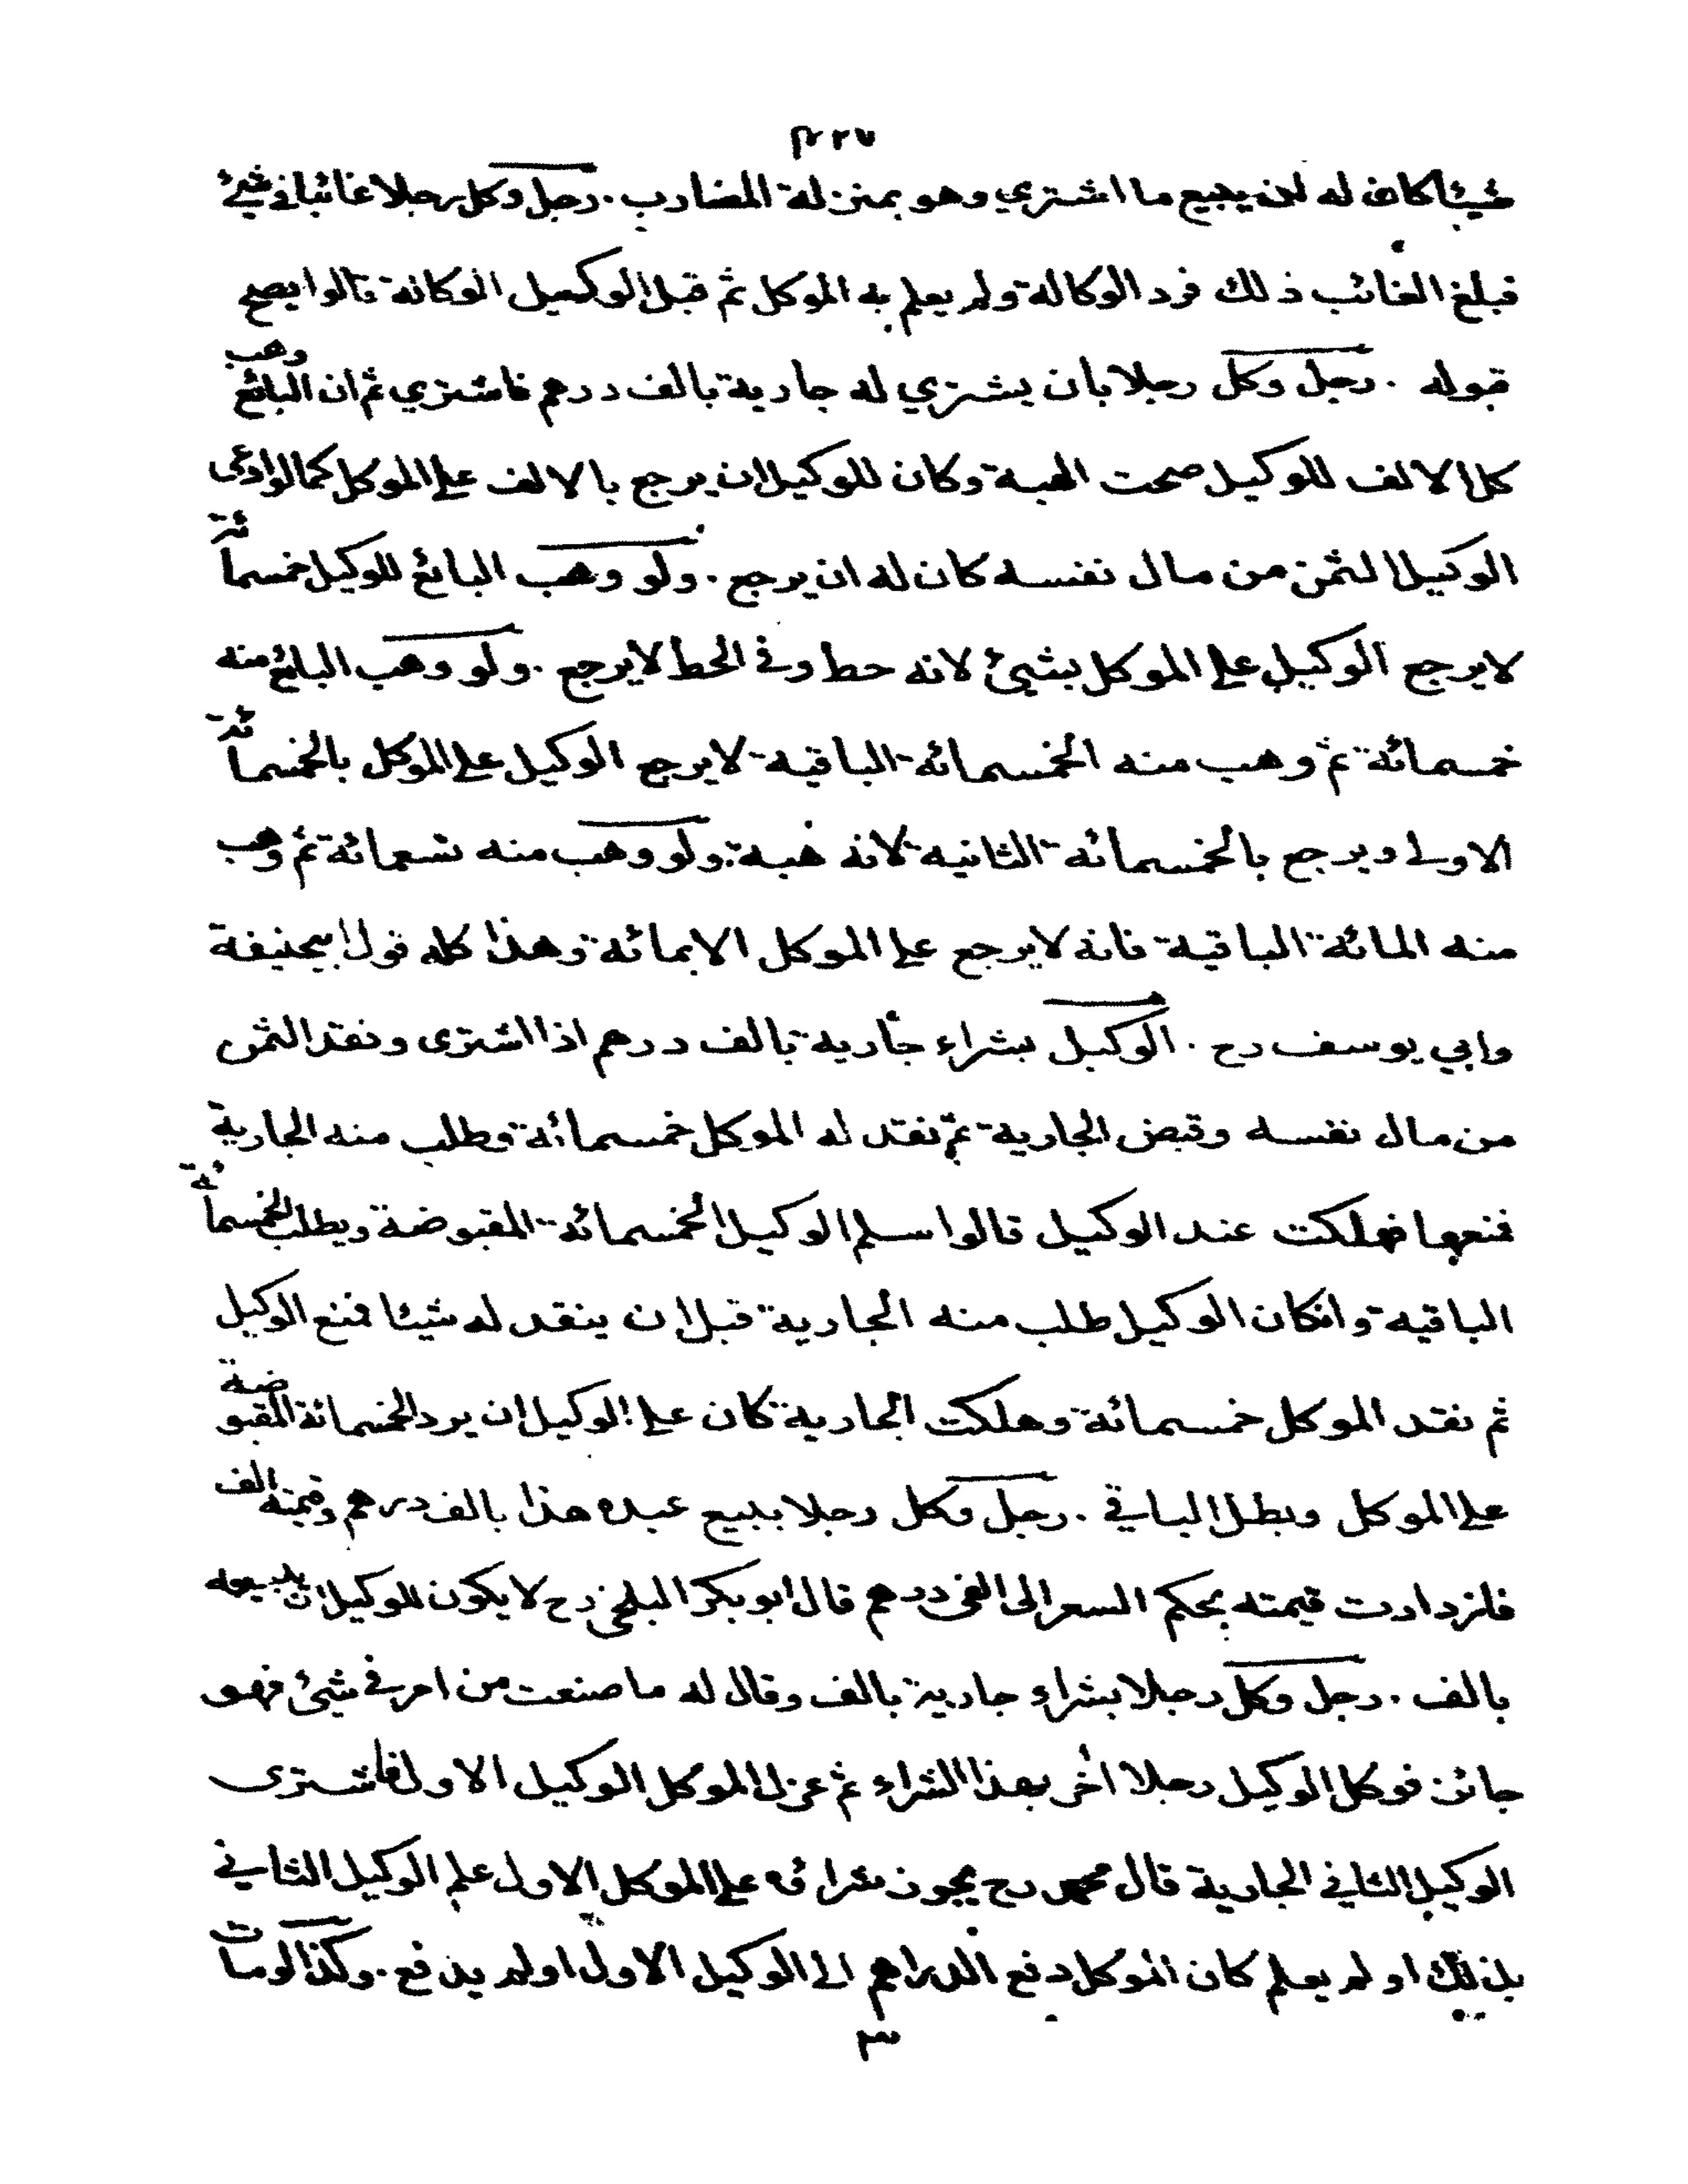 ٣٢٧
شيئا كان له ان يبيع ما اشتري وهو بمنزلة المضارب . رجل وكل رجلا غائبا في شيئ
فبلغ الغائب ذلك فرد الوكالة ولم يعلم به الموكل ثم قبل الوكيل الوكالة قالوا يصح
قبوله . رجل وكل رجلا بان يشتري له جارية بالف درهم فاشتري ثم ان البائع وهب
كل الالف للوكيل صحت الهبة وكان للوكيل ان يرجع بالالف علے الموكل كما لو ادى
الوكيل الثمن من مال نفسه كان له ان يرجع . ولو وهب البائع للوكيل خمسمائة
لا يرجع الوكيل علے الموكل بشيئ لانه حط وفي الحط لا يرجع . ولو وهب البائع منه
خمسمائة ثم وهب منه الخمسمائة الباقية لا يرجع الوكيل علے الموكل بالخمسمائة
الاولے ويرجع بالخمسمائة الثانية لانه هبة . ولو وهب منه تسعمائة ثم وهب
منه المائة الباقية فانه لا يرجع علے الموكل الا بمائة وهذا كله قول ابيحنيفة
وابي يوسف رح . الوكيل بشراء جارية بالف درهم اذا اشترى ونقد الثمن
من مال نفسه وقبض الجارية ثم نقد له الموكل خمسمائة وطلب منه الجارية
فمنعها فهلكت عند الوكيل قالوا سلم الوكيل الخمسمائة المقبوضة ويطلب الخمسمائة
الباقية وانكان الوكيل طلب منه الجارية قبل ان ينقد له شيئا فمنع الوكيل
ثم نقد الموكل خمسمائة وهلكت الجارية كان علے الوكيل ان يرد الخمسمائة المقبوضة
علے الموكل وبطل الباقي . رجل وكل رجلا ببيع عبده هذا بالف درهم وقيمته الف
فازدادت قيمته بحكم السعر الى الفي درهم قال ابو بكر البلخي رح لا يكون للوكيل ان يبيعه
بالف . رجل وكل رجلا بشراء جارية بالف وقال له ما صنعت من امر في شيئ فهو
جائز فوكل الوكيل رجلا اخر بهذا الشراء ثم عزل الموكل الوكيل الاول فاشترى
الوكيل الثاني الجارية قال محمد رح يجوز شراؤه علے الموكل الاول علم الوكيل الثاني
بذلك او لم يعلم كان الموكل دفع الدراهم الے الوكيل الاول او لم يدفع . وكذا لو مات